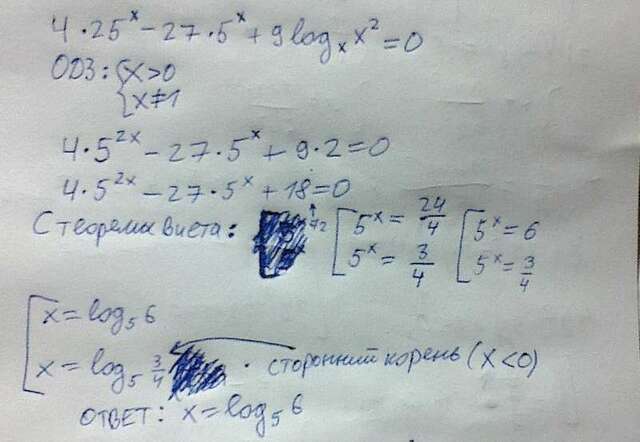 4·25ˣ − 27·5ˣ + 9 logₓ x² = 0
ОДЗ: { x>0
{ x≠1
4·5²ˣ − 27·5ˣ + 9·2 = 0
4·5²ˣ − 27·5ˣ + 18 = 0
С теорема Виета: [ 5ˣ = 24/4 [ 5ˣ = 6
72
5ˣ = 3/4 5ˣ = 3/4
[ x = log₅ 6
x = log₅ 3/4 · сторонний корень (x<0)
ОТВЕТ: x = log₅ 6